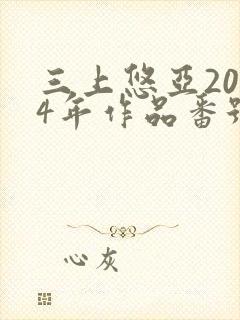 三上悠亞20
4年作品番号
心灰